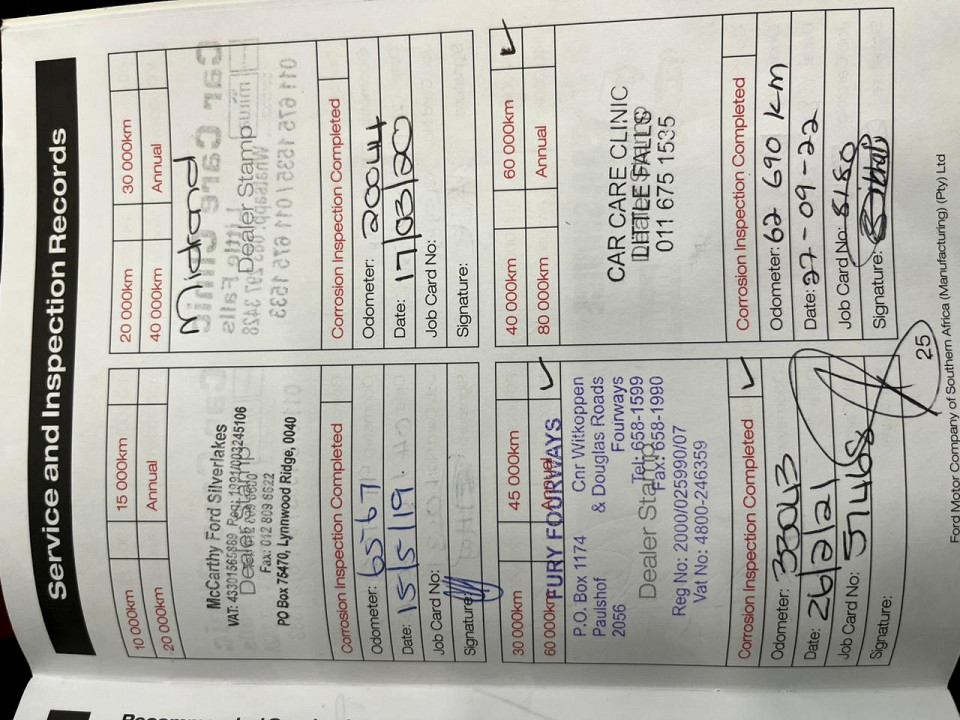 Service and Inspection Records
10 000km 15 000km
20 000km Annual
McCarthy Ford Silverlakes
VAT: 4330156589 Reg: 1991/003245106
Dealer Stamp
Fax: 012 809 6622
PO Box 75470, Lynnwood Ridge, 0040
Corrosion Inspection Completed
Odometer: 6567
Date: 15/5/19.
Job Card No:
Signature:
20 000km 30 000km
40 000km Annual
Midrand
Dealer Stamp
Corrosion Inspection Completed
Odometer: 20044
Date: 17/03/20
Job Card No:
Signature:
30 000km 45 000km
60 000km Annual
FURY FOURWAYS
P.O. Box 1174 Cnr Witkoppen
Paulshof & Douglas Roads
2056 Fourways
Tel: 658-1599
Dealer Stamp
Fax: 658-1990
Reg No: 2000/025990/07
Vat No: 4800-246359
Corrosion Inspection Completed ✓
Odometer: 33043
Date: 26/2/21
Job Card No: 57468
Signature:
40 000km 60 000km ✓
80 000km Annual
CAR CARE CLINIC
LITTLE FALLS
011 675 1535
Corrosion Inspection Completed
Odometer: 62 690 km
Date: 27-09-22
Job Card No: 8180
Signature:
25
Ford Motor Company of Southern Africa (Manufacturing) (Pty) Ltd